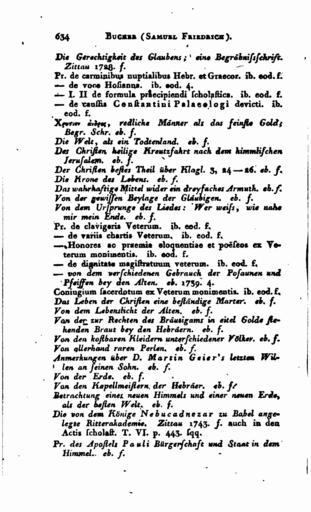 634 BUCHER (SAMUEL FRIEDRICH).
Die Gerechtigkeit des Glaubens; eine Begräbnißschrift.
Zittau 1728. f.
Pr. de carminibus nuptialibus Hebr. et Graecor. ib. eod. f.
— de voce Hosianna. ib. eod. 4.
— I. II de formula praecipiendi scholastica. ib. eod. f.
— de caussis Constantini Palaeologi devicti. ib.
eod. f.
redliche Männer als das feinste Gold;
Begr. Schr. eb. f.
Die Welt, als ein Todtenland. eb. f.
Des Christen heilige Kreutzfahrt nach dem himmlischen
Jerusalem. eb. f.
Der Christen bestes Theil über Klagl. 3, 24—26. eb. f.
Die Krone des Lebens. eb. f.
Das wahrhaftige Mittel wider ein dreyfaches Armuth. eb. f.
Von der gewissen Beylage der Gläubigen. eb. f.
Von dem Ursprunge des Liedes: Wer weiß, wie nahe
mir mein Ende. eb. f.
Pr. de clavigeris Veterum. ib. eod. f.
— de variis chartis Veterum. ib. eod. f.
— Honores ac praemia eloquentiae et poëseos ex Ve-
terum monimentis. ib. eod. f.
— de dignitate magistratuum veterum. ib. eod. f.
— von dem verschiedenen Gebrauch der Posaunen und
Pfeiffen bey den Alten. eb. 1739. 4.
Coniugium sacerdotum ex Veterum monimentis. ib. eod. f.
Das Leben der Christen eine beständige Marter. eb. f.
Von dem Lebenslicht der Alten. eb. f.
Von der zur Rechten des Bräutigams in eitel Golde ste-
henden Braut bey den Hebräern. eb. f.
Von den kostbaren Kleidern unterschiedener Völker. eb. f.
Von allerhand raren Perlen. eb. f.
Anmerkungen über D. Martin Geier's letzten Wil-
len an seinen Sohn. eb. f.
Von der Erde. eb. f.
Von den Kapellmeistern der Hebräer. eb. f.
Betrachtung eines neuen Himmels und einer neuen Erde,
als der besten Welt. eb. f.
Die von dem Könige Nebucadnezar zu Babel ange-
legte Ritterakademie. Zittau 1743. f. auch in den
Actis scholast. T. VI. p. 443. sqq.
Pr. des Apostels Pauli Bürgerschaft und Staat in dem
Himmel. eb. f.